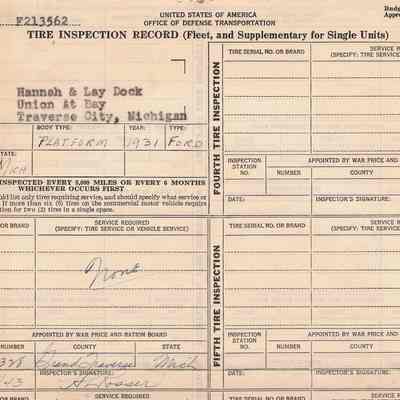 Budg
Appro
F213562
UNITED STATES OF AMERICA
OFFICE OF DEFENSE TRANSPORTATION
TIRE INSPECTION RECORD (Fleet, and Supplementary for Single Units)
Hannah & Lay Dock
Union At Bay
Traverse City, Michigan
BODY TYPE: YEAR: TYPE:
PLATFORM 1931 FORD
STATE:
Mich
INSPECTED EVERY 5,000 MILES OR EVERY 6 MONTHS
WHICHEVER OCCURS FIRST
ld list only tires requiring service, and should specify what service or
If more than six (6) tires on the commercial motor vehicle require
tion for two (2) tires in a single space.
OR BRAND SERVICE REQUIRED
(SPECIFY: TIRE SERVICE OR VEHICLE SERVICE)
None
APPOINTED BY WAR PRICE AND RATION BOARD
NUMBER COUNTY STATE
328 Grand Traverse Mich
INSPECTOR'S SIGNATURE:
43
OR BRAND SERVICE REQUIRED
(SPECIFY: TIRE SERVICE OR VEHICLE SERVICE)
FOURTH TIRE INSPECTION
TIRE SERIAL NO. OR BRAND SERVICE R
(SPECIFY: TIRE SE
INSPECTION
STATION APPOINTED BY WAR PRICE AND
NUMBER COUNTY
DATE: INSPECTOR'S SIGNATURE:
FIFTH TIRE INSPECTION
TIRE SERIAL NO. OR BRAND SERVICE R
(SPECIFY: TIRE SE
INSPECTION
STATION APPOINTED BY WAR PRICE AND
NUMBER COUNTY
DATE: INSPECTOR'S SIGNATURE:
TIRE SERIAL NO. OR BRAND SERVICE R
(SPECIFY: TIRE SE